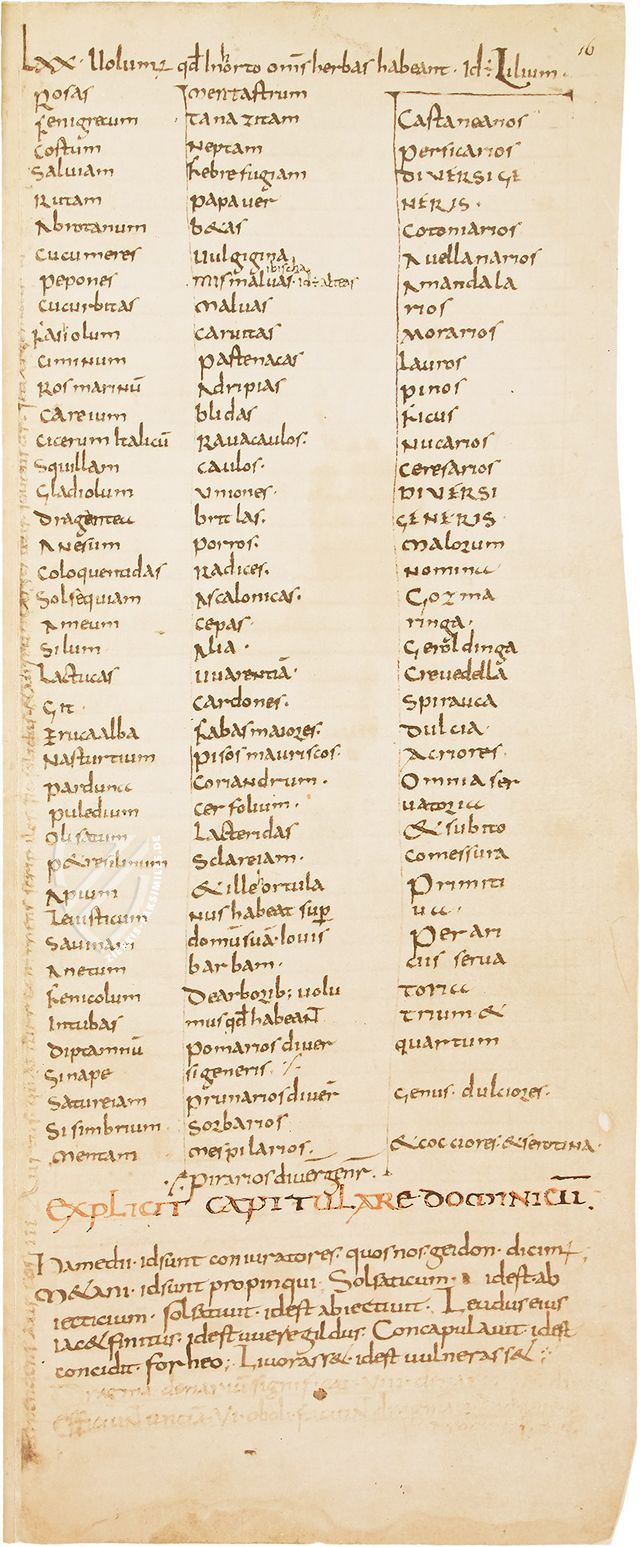 16
Lxx. Uolumꝰ qđ In horto om̅s herbas habeant. Id ÷ Lilium.
Rosas
fenigrecum
Costum
Salviam
Rutam
Abrotanum
Cucumeres
pepones
Cucurbitas
fasiolum
Ciminum
Rosmarinū
Careium
Cicerum Italicū
Squillam
Gladiolum
Dragantea
Anesum
Coloquentidas
Solsequiam
Ameum
Silum
Lactucas
Git
Eruca alba
Nasturtium
parduna
puledium
Olisatum
p&resilinum
Apium
Leuisticum
Sauinam
Anetum
fenicolum
Intubas
Diptamnū
Sinape
Satureiam
Sisimbrium
Mentam
Mentastrum
Tanazitam
Neptam
febrefugiam
papauer
b&as
Uulgigina
ibischa
mismaluas. id÷ alteas
Maluas
Caruitas
pastenacas
Adripias
blidas
Rauacaulos.
Caulos.
Uniones.
britlas.
porros.
Radices.
Ascalonicas.
Cepas.
Alia.
Uuarentiā.
Cardones.
fabas maiores.
pisos mauriscos.
Coriandrum.
Cerfolium.
Lacteridas
Sclareiam.
& ille hortula
nus habeat sup̄
domū suā. Iouis
barbam.
De arborib; uolu
mus qđ habeant
pomarios diuer
si generis
prunarios diuer̄
Sorbarios
mespilarios.
pirarios diuer̄ gener̄.
Castaneanos
persicarios
DIVERSI GE
NERIS.
Cotoniarios
Auellanarios
Amandala
rios
Morarios
Lauros
pinos
ficus
Nucarios
Ceresarios
DIVERSI
GENERIS
Malorum
Nomina
Gozma
ringa.
Geroldinga
Creuedella
Spirauca
Dulcia.
Acriores.
Omnia ser
uatoria
& subito
comessura
Primiti
ua.
Perari
ciis serua
toria
trium &
quartum
genus. dulciores.
& cocciores. & serotina.
EXPLICIT CAPITULARE DOMINICŪ.
Hamedii. id sunt coniuratores. quos nos geidon. dicim;
M&ani. id sunt propinqui. Solsaticum. id est. ab
iecticium. solsatiuit. id est abiectiuit. Leudus eius
iac& finitus. id est uueregildus. Concapulauit. id est
concidit. forheo; Liuorass&. id est uulnerass&
ZIEREIS-FAKSIMILES.DE